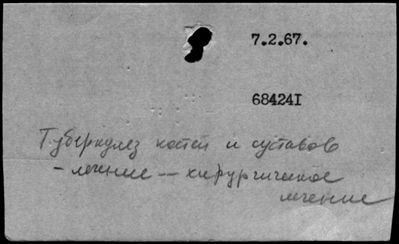 7.2.67.
68424I
Туберкулез костей и суставов
- лечение — хирургическое
лечение